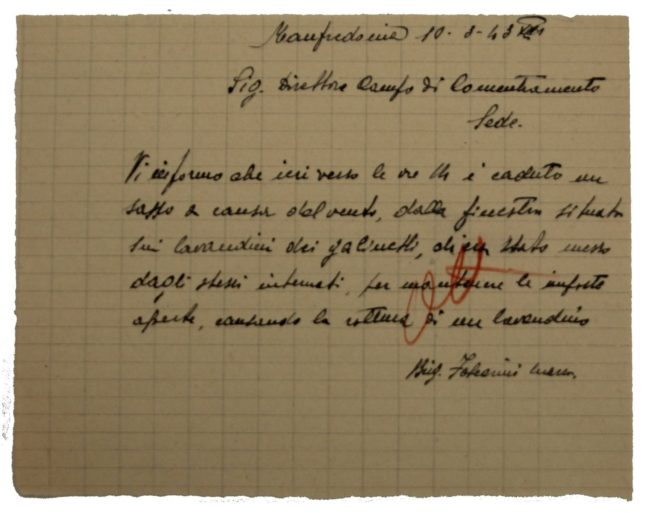 Manfredonia 10-3-43 XXI
Sig. Direttore Campo di Concentramento
Sede.
Vi informo che ieri verso le ore 14 è caduto un
sasso a causa del vento, dalla finestra situata
sui lavandini dei gabinetti, che era stato messo
dagli stessi internati, per mantenere le imposte
aperte, causando la rottura di un lavandino
Brig.